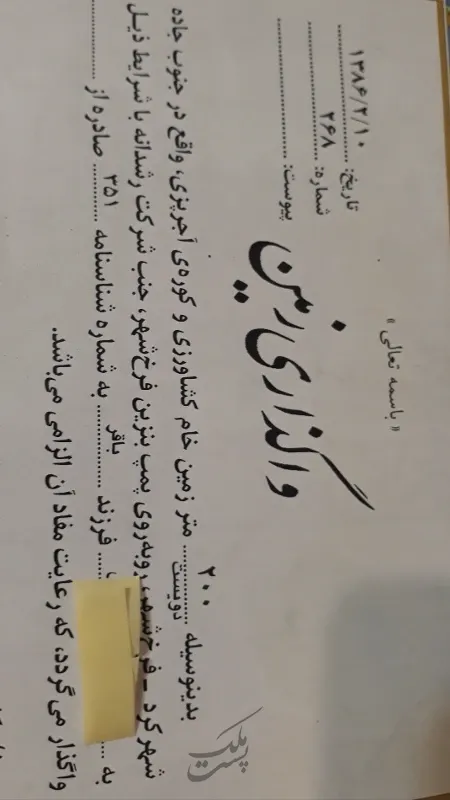 « باسمه تعالی »
تاریخ: ۱۳۸۶/۲/۱۰
شماره: ۲۶۸
پیوست:
واگذاری زمین
بدینوسیله ۲۰۰ دویست متر زمین خام کشاورزی و کوره‌ی آجرپزی، واقع در جنوب جاده
شهرکرد - فرخ‌شهر، روبه‌روی پمپ بنزین فرخ‌شهر، جنب شرکت رشدانه با شرایط ذیل
به فرزند باقر به شماره شناسنامه ۳۵۱ صادره از
واگذار می گردد، که رعایت مفاد آن الزامی می‌باشد.
ملک پست